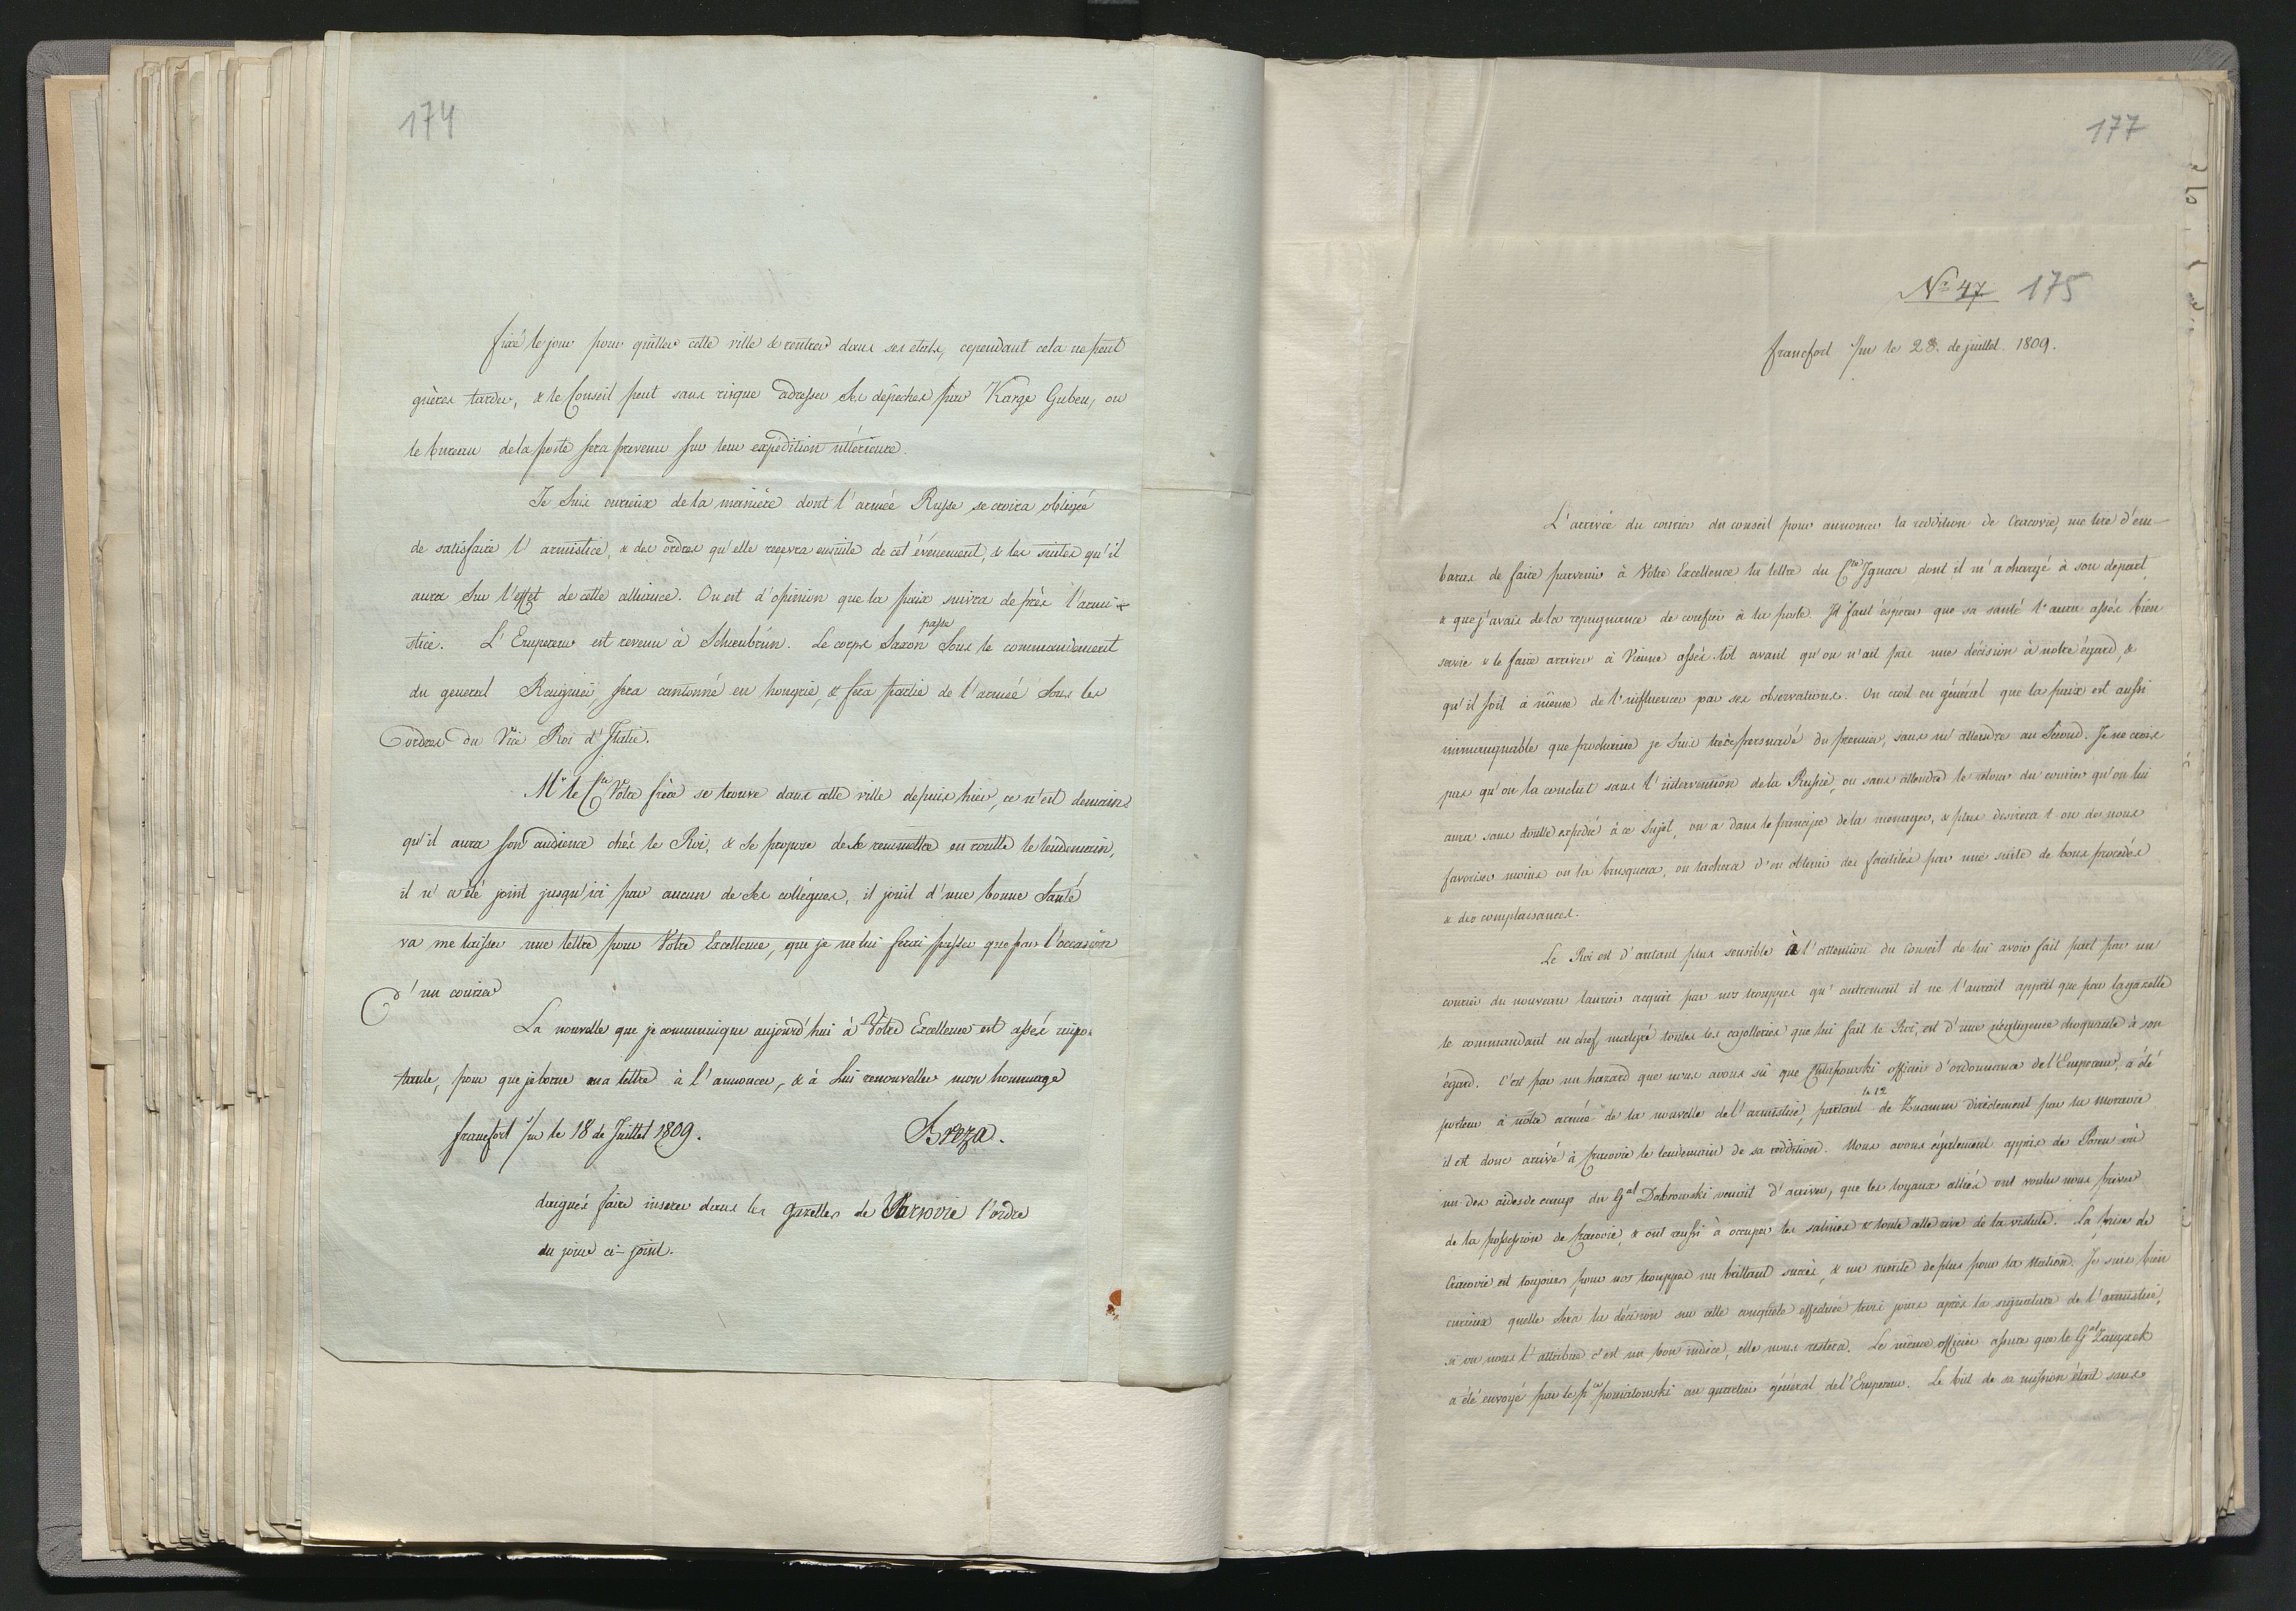 174
fixé le jour pour quitter cette ville & rentrer dans ses etats, cependant cela ne peut
guères tarder, & le Conseil peut sans risque adresser Ses dépeches par Karge Guben, ou
le bureau de la poste sera prevenu sur leur expédition ultérieure.
Je Suis curieux de la manière dont l'armée Russe se croira obligée
de satisfaire l'armistice, & des ordres qu'elle recevra ensuite de cet événement, & les suites qu'il
aura Sur l'effet de cette alliance. On est d'opinion que la paix suivra de près l'armi-
passe
stice. L'Empereur est revenu à Schoenbrün. Le corps Saxon Sous le commandement
du general Reignier sera cantonné en hongrie, & fera partie de l'armée Sous les
ordres du Vice Roi d'Italie.
Mr le Cte Votre frère se trouve dans cette ville depuis hier, ce n'est demain
qu'il aura son audience chés le Roi, & Se propose de Se remmettre en routte le lendemain,
il n'a été joint jusqu'ici par aucun de Ses collégues, il jouit d'une bonne Santé
va me laisser une lettre pour Votre Excellence, que je ne lui ferai passer que par l'occasion
d'un courier
La nouvelle que je communique aujourd'hui à Votre Excellence est assés impor
tante, pour que je borne ma lettre à l'annoncer, & à Lui renouveller mon hommage
francfort s/m le 18 de Juillet 1809.
Breza.
daignés faire inserer dans les gazettes de Varsovie l'ordre
du jour ci-joint.
177
No 47 175
francfort s/m le 28. de juillet. 1809.
L'arrivée du courier du conseil pour annoncer la reddition de Cracovie, me tire d'em-
baras de faire parvenir à Votre Excellence la lettre du Cte Ignace dont il m'a chargé à son depart
& que j'avais de la repugnance de confier à la poste. Il faut ésperer que sa santé l'aura assés bien
servie & le faire arriver à Vienne assés tôt avant qu'on n'ait pris une décision à notre égard, &
qu'il soit à même de l'influencer par ses observations. On croit en général que la paix est aussi
immanquable que prochaine je Suis très persuadé du premier, sans m'attendre au Second. Je ne crois
pas qu'on la conclut sans l'intervention de la Russie, ou sans attendre le retour du courier qu'on lui
aura sans doutte expedié à ce Sujet, on a dans le principe de la menager, & plus desirera t-on de nous
favoriser moins on la brusquera, on tachera d'en obtenir des facilités par une suite de bons procedés
& des complaisances.
Le Roi est d'autant plus sensible à l'attention du Conseil de lui avoir fait part par un
courier du nouveau laurier acquis par nos trouppes qu'autrement il ne l'aurait apprit que par la gazette
le commandant en chef malgré toutes les cajolleries que lui fait le Roi, est d'une négligence choquante à son
égard. C'est par un hazard que nous avons sû que Chlapowski officier d'ordonnance de l'Empereur, a été
le 12
porteur à nôtre armée de la nouvelle de l'armistice, partant de Znaimm directement par la Moravie
il est donc arrivé à Cracovie le lendemain de sa reddition. Nous avons également appris de Posen où
un des aides de camp du Gal Dabrowski venait d'arriver, que les loyaux alliés ont voulu nous priver
de la possession de Cracovie, & ont reussi à occuper les salines & toute cette rive de la vistule. La prise de
Cracovie est toujours pour nos trouppes un brillant succès, & un merite de plus pour la Nation. Je suis bien
curieux quelle Sera la décision sur cette conquête effectuée trois jours après la signature de l'armistice,
si on nous l'attribue c'est un bon indice, elle nous restera. Le même officier assure que le Gal Zaiyzek
a été envoyé par le pce poniatowski au quartier général de l'Empereur. Le but de sa mission était sans